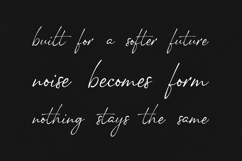 built for a softer future
noise becomes form
nothing stays the same